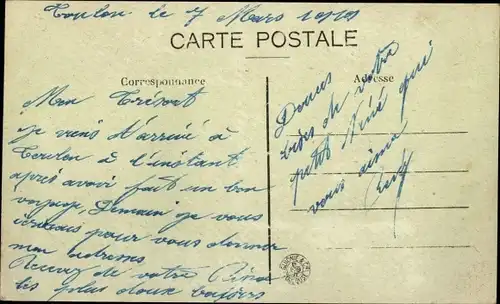 Toulon le 7 Mars 1919
CARTE POSTALE
Correspondance
Adresse
Mon Trésort
je viens d'arrivé à
Toulon à l'instant
après avoir fait un bon
voyage, Demain je vous
écrirais pour vous donner
mon adresse
Recevez de votre Réné
les plus doux baisers
Doux
bises de votre
petit Réné qui
vous aime